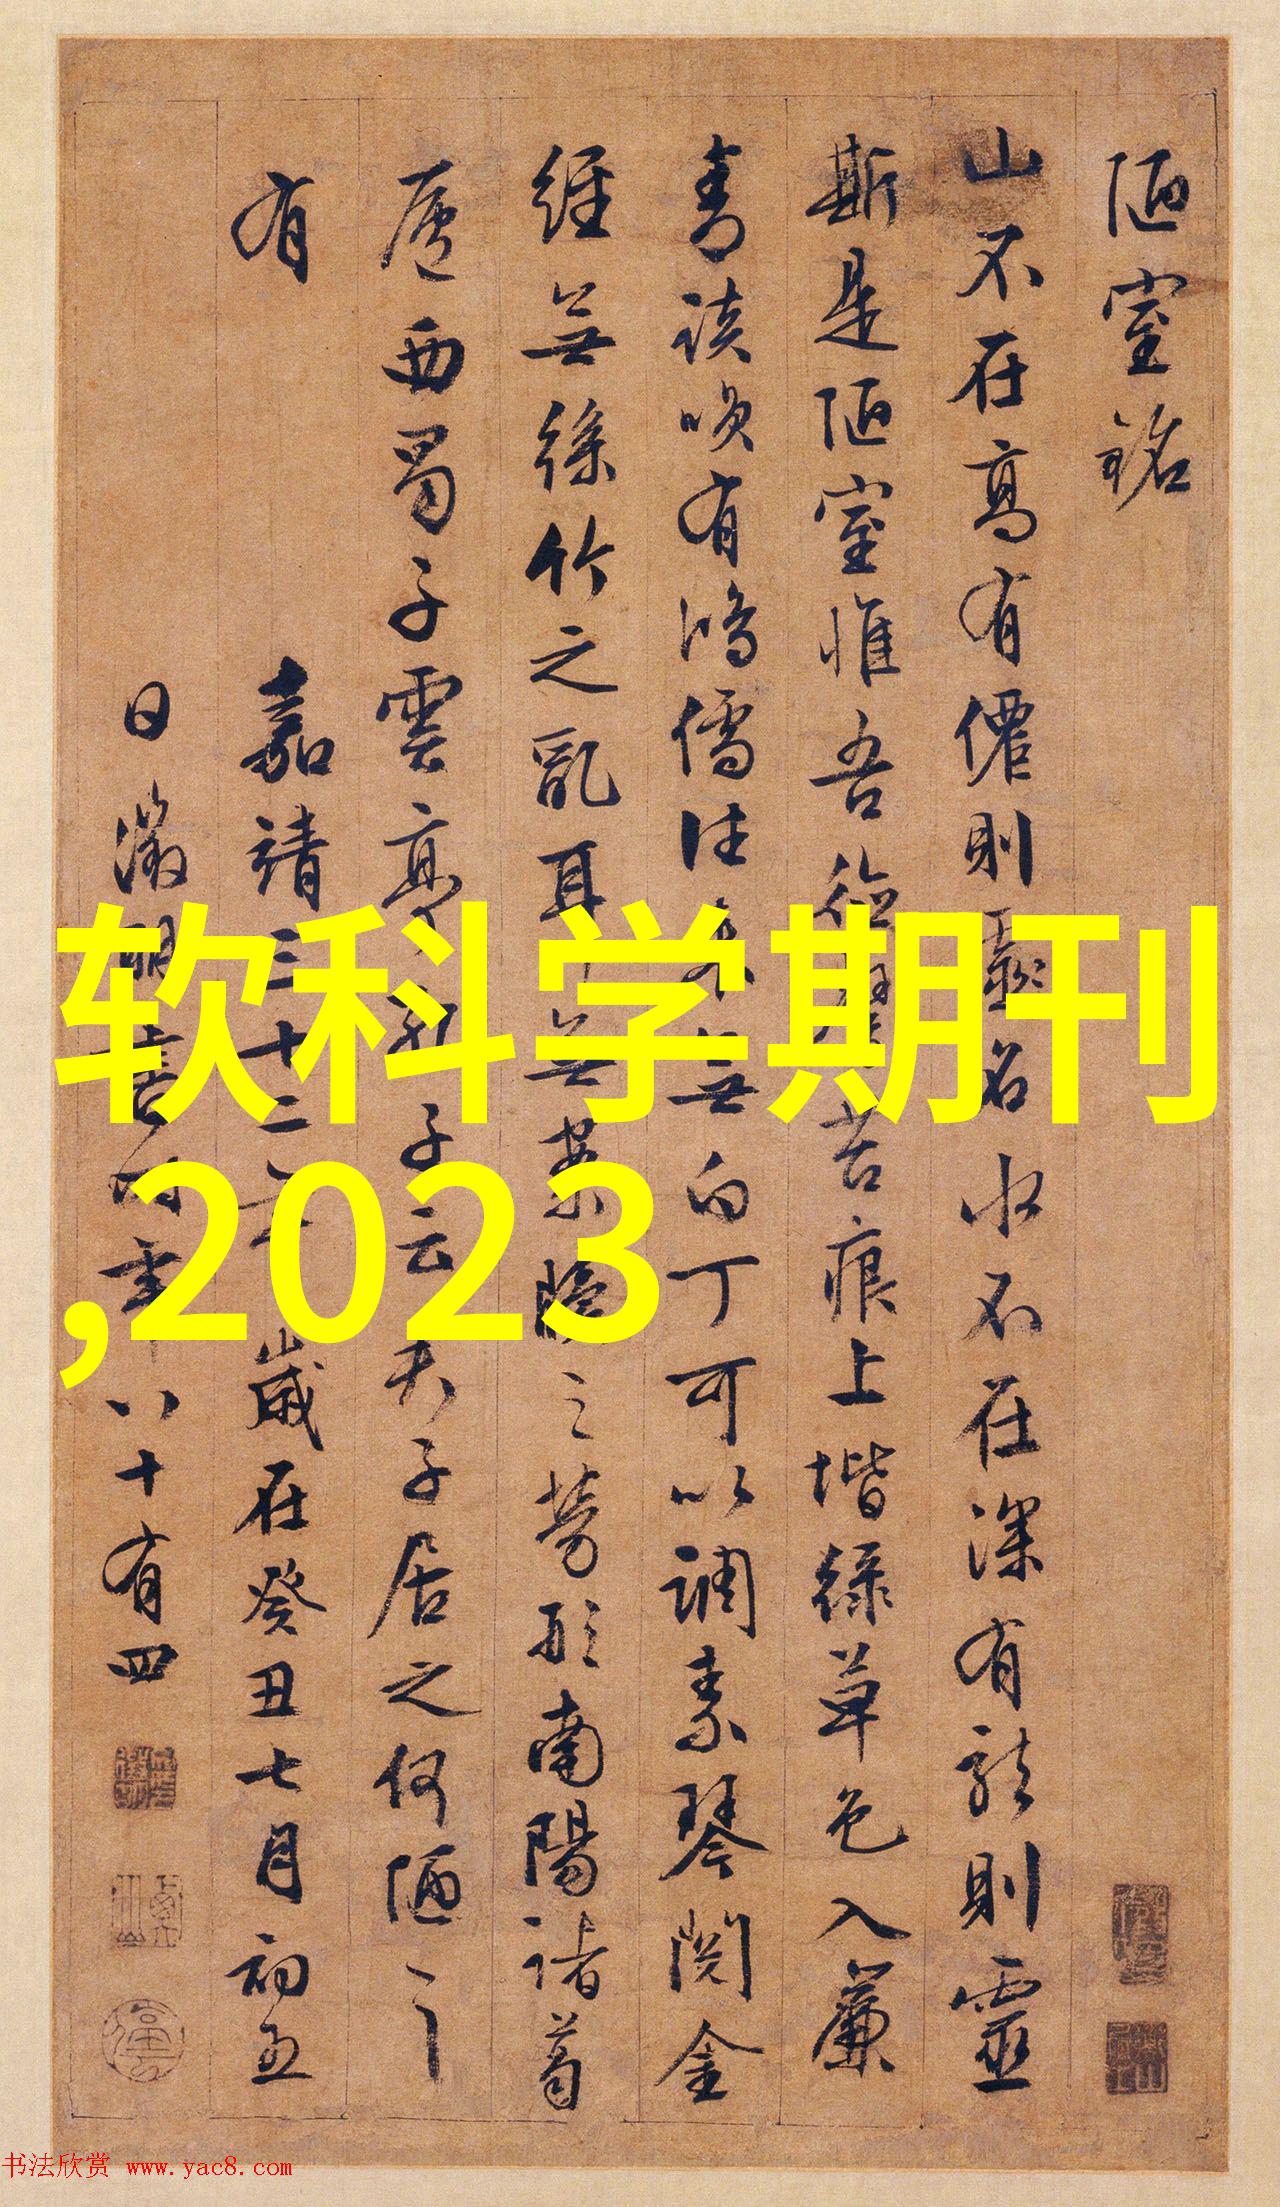 陋室銘
山不在高有僊則名水不在深有龍則靈
斯是陋室惟吾德馨苔痕上堦綠草色入簾
青談咲有鴻儒往來無白丁可以調素琴閱金
經無絲竹之亂耳無案牘之勞形南陽諸葛
廬西蜀子雲亭孔子云夫子居之何陋之
有 嘉靖三十二年歲在癸丑七月初五
日徵明書時年八十有四
软科学期刊
,2023
书法欣赏 www.yac8.com